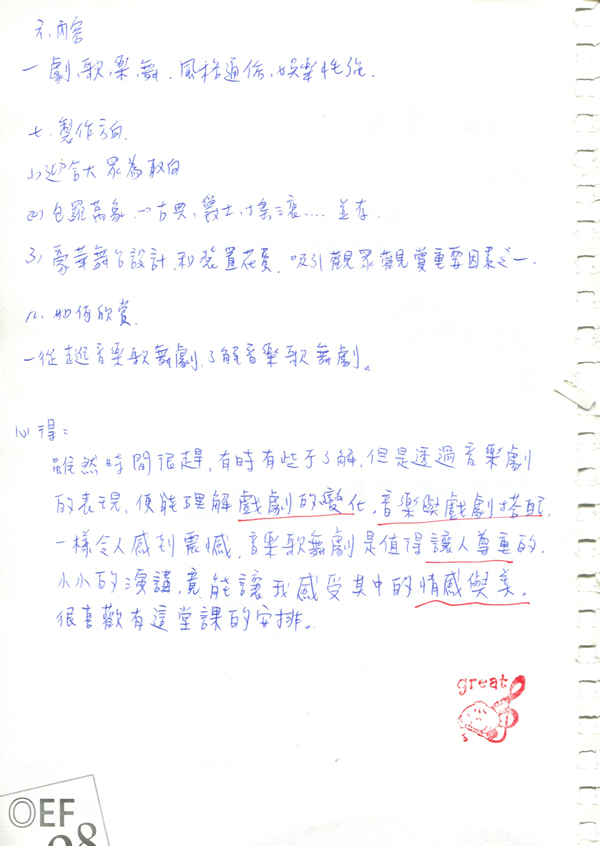 六、內容
一 劇、歌、樂、舞. 風格通俗, 娛樂性強.
七. 製作方向.
1) 迎合大眾為取向
2) 包羅萬象. 一古典, 爵士, 搖滾.... 並存.
3) 豪華舞台設計, 和裝置花費. 吸引觀眾觀賞重要因素之一.
八. 如何欣賞.
一從走近音樂歌舞劇, 了解音樂歌舞劇。
心得:
雖然時間很趕, 有時有些不了解, 但是透過音樂劇
的表現, 便能理解戲劇的變化, 音樂與戲劇搭配,
一樣令人感到震憾. 音樂歌舞劇是值得讓人尊重的.
小小的演講, 竟能讓我感受其中的情感與美.
很喜歡有這堂課的安排。
great
OEF
98